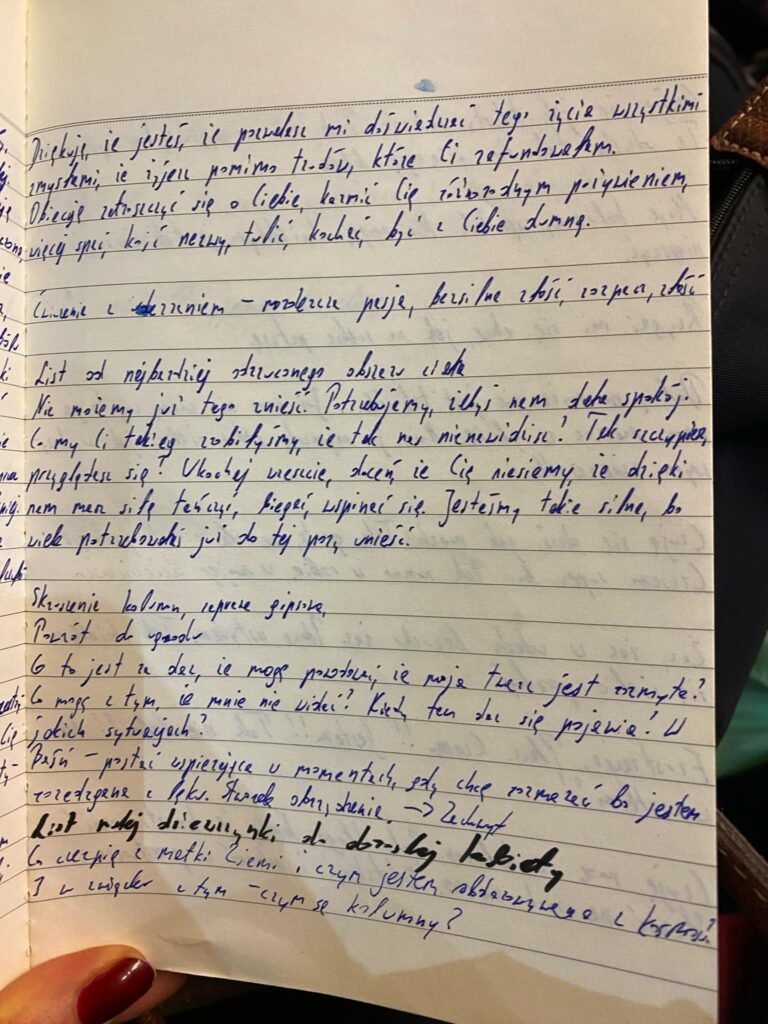 Dziękuję, że jesteś, że pozwalasz mi doświadczać tego życia wszystkimi
zmysłami, że żyjesz pomimo trudów, które Ci zafundowałam.
Obiecuję zatroszczyć się o Ciebie, karmić Cię różnorodnym pożywieniem,
więcej spać, koić nerwy, tulić, kochać, być z Ciebie dumną.
Ćwiczenie z – pasja, bezsilna złość, rozpacz, złość
List od najbardziej odrzuconego obszaru ciała
Nie możemy już tego znieść. Potrzebujemy, żebyś nam dała spokój.
Co my Ci takieg zrobiłyśmy, że tak nas nienawidzisz? Tak szczypiesz,
przyglądasz się! Ukochaj wreszcie, doceń, że Cię niesiemy, że dzięki
nam masz siłę tańczyć, biegać, wspinać się. Jesteśmy takie silne, bo
wiele potrzebowałaś już do tej pory unieść.
kolumn, gipsowa,
Powrót do ogrodu
Co to jest za dar, że mogę powodować, że moja twarz jest rozmyta?
Co mogę z tym, że mnie nie widać? Kiedy ten dar się pojawia? W
jakich sytuacjach?
Baśń – postać wspierająca w momentach, gdy chcę bo jestem
rozedrgana z lęku. → Zachwyt
List małej dziewczynki do dorosłej kobiety
Co czerpię z matki Ziemi i czym jestem obdarowywana z kosmosu?
I w związku z tym – czym są kolumny?